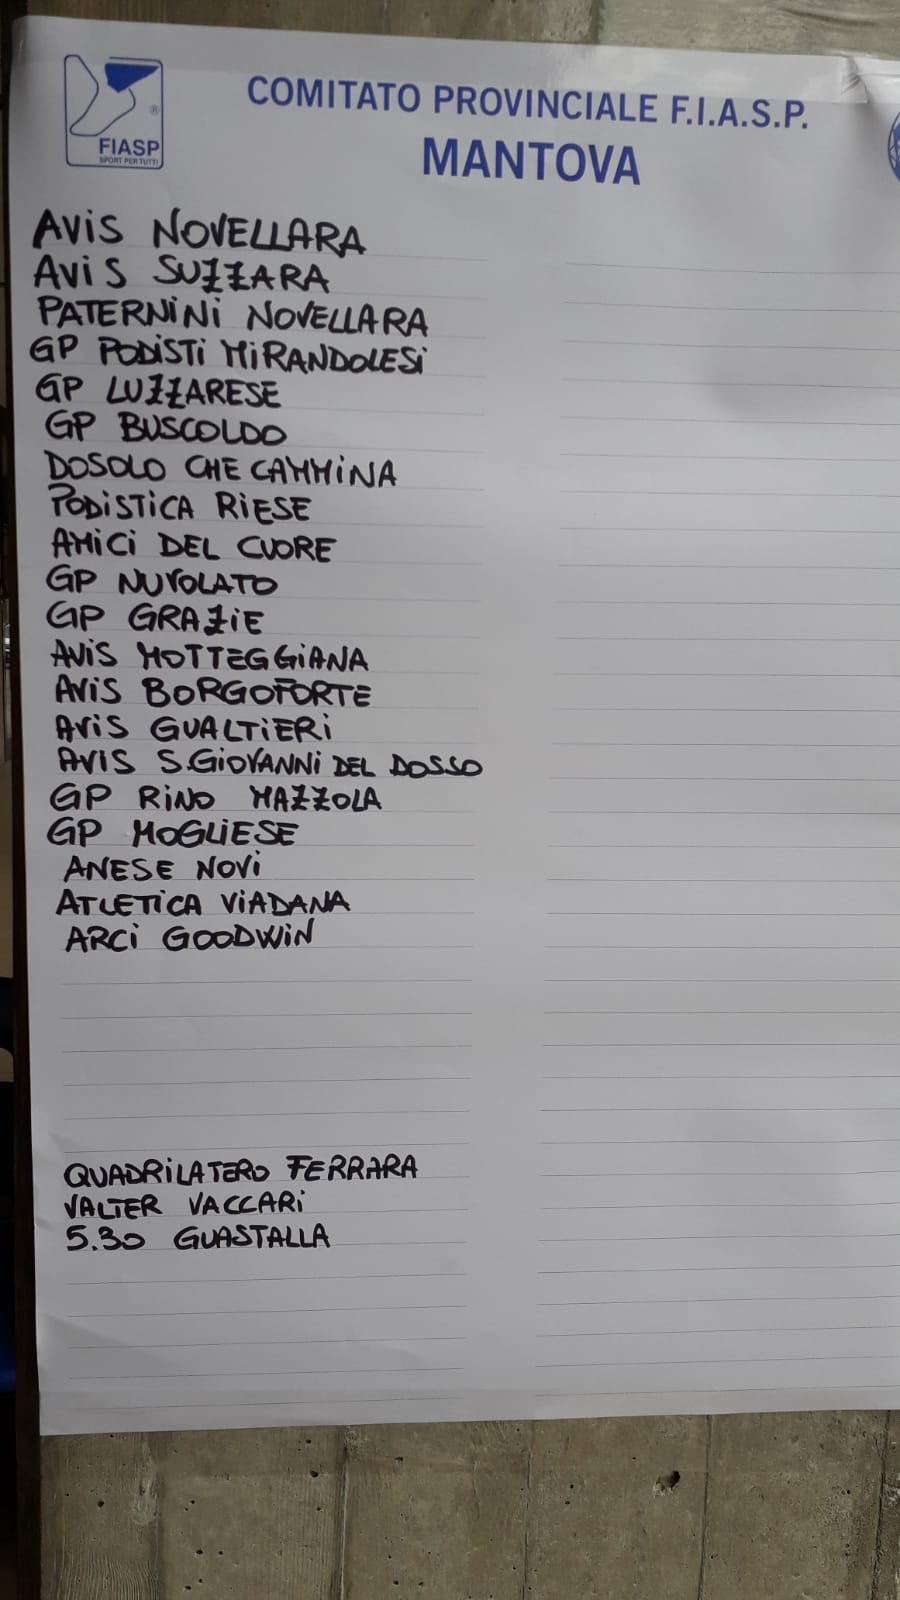 FIASP
SPORT PER TUTTI
®
COMITATO PROVINCIALE F.I.A.S.P.
MANTOVA
AVIS NOVELLARA
AVIS SUZZARA
PATERNINI NOVELLARA
GP PODISTI MIRANDOLESI
GP LUZZARESE
GP BUSCOLDO
DOSOLO CHE CAMMINA
PODISTICA RIESE
AMICI DEL CUORE
GP NUVOLATO
GP GRAZIE
AVIS MOTTEGGIANA
AVIS BORGOFORTE
AVIS GUALTIERI
AVIS S.GIOVANNI DEL DOSSO
GP RINO MAZZOLA
GP MOGLIESE
ANESE NOVI
ATLETICA VIADANA
ARCI GOODWIN
QUADRILATERO FERRARA
VALTER VACCARI
5.30 GUASTALLA